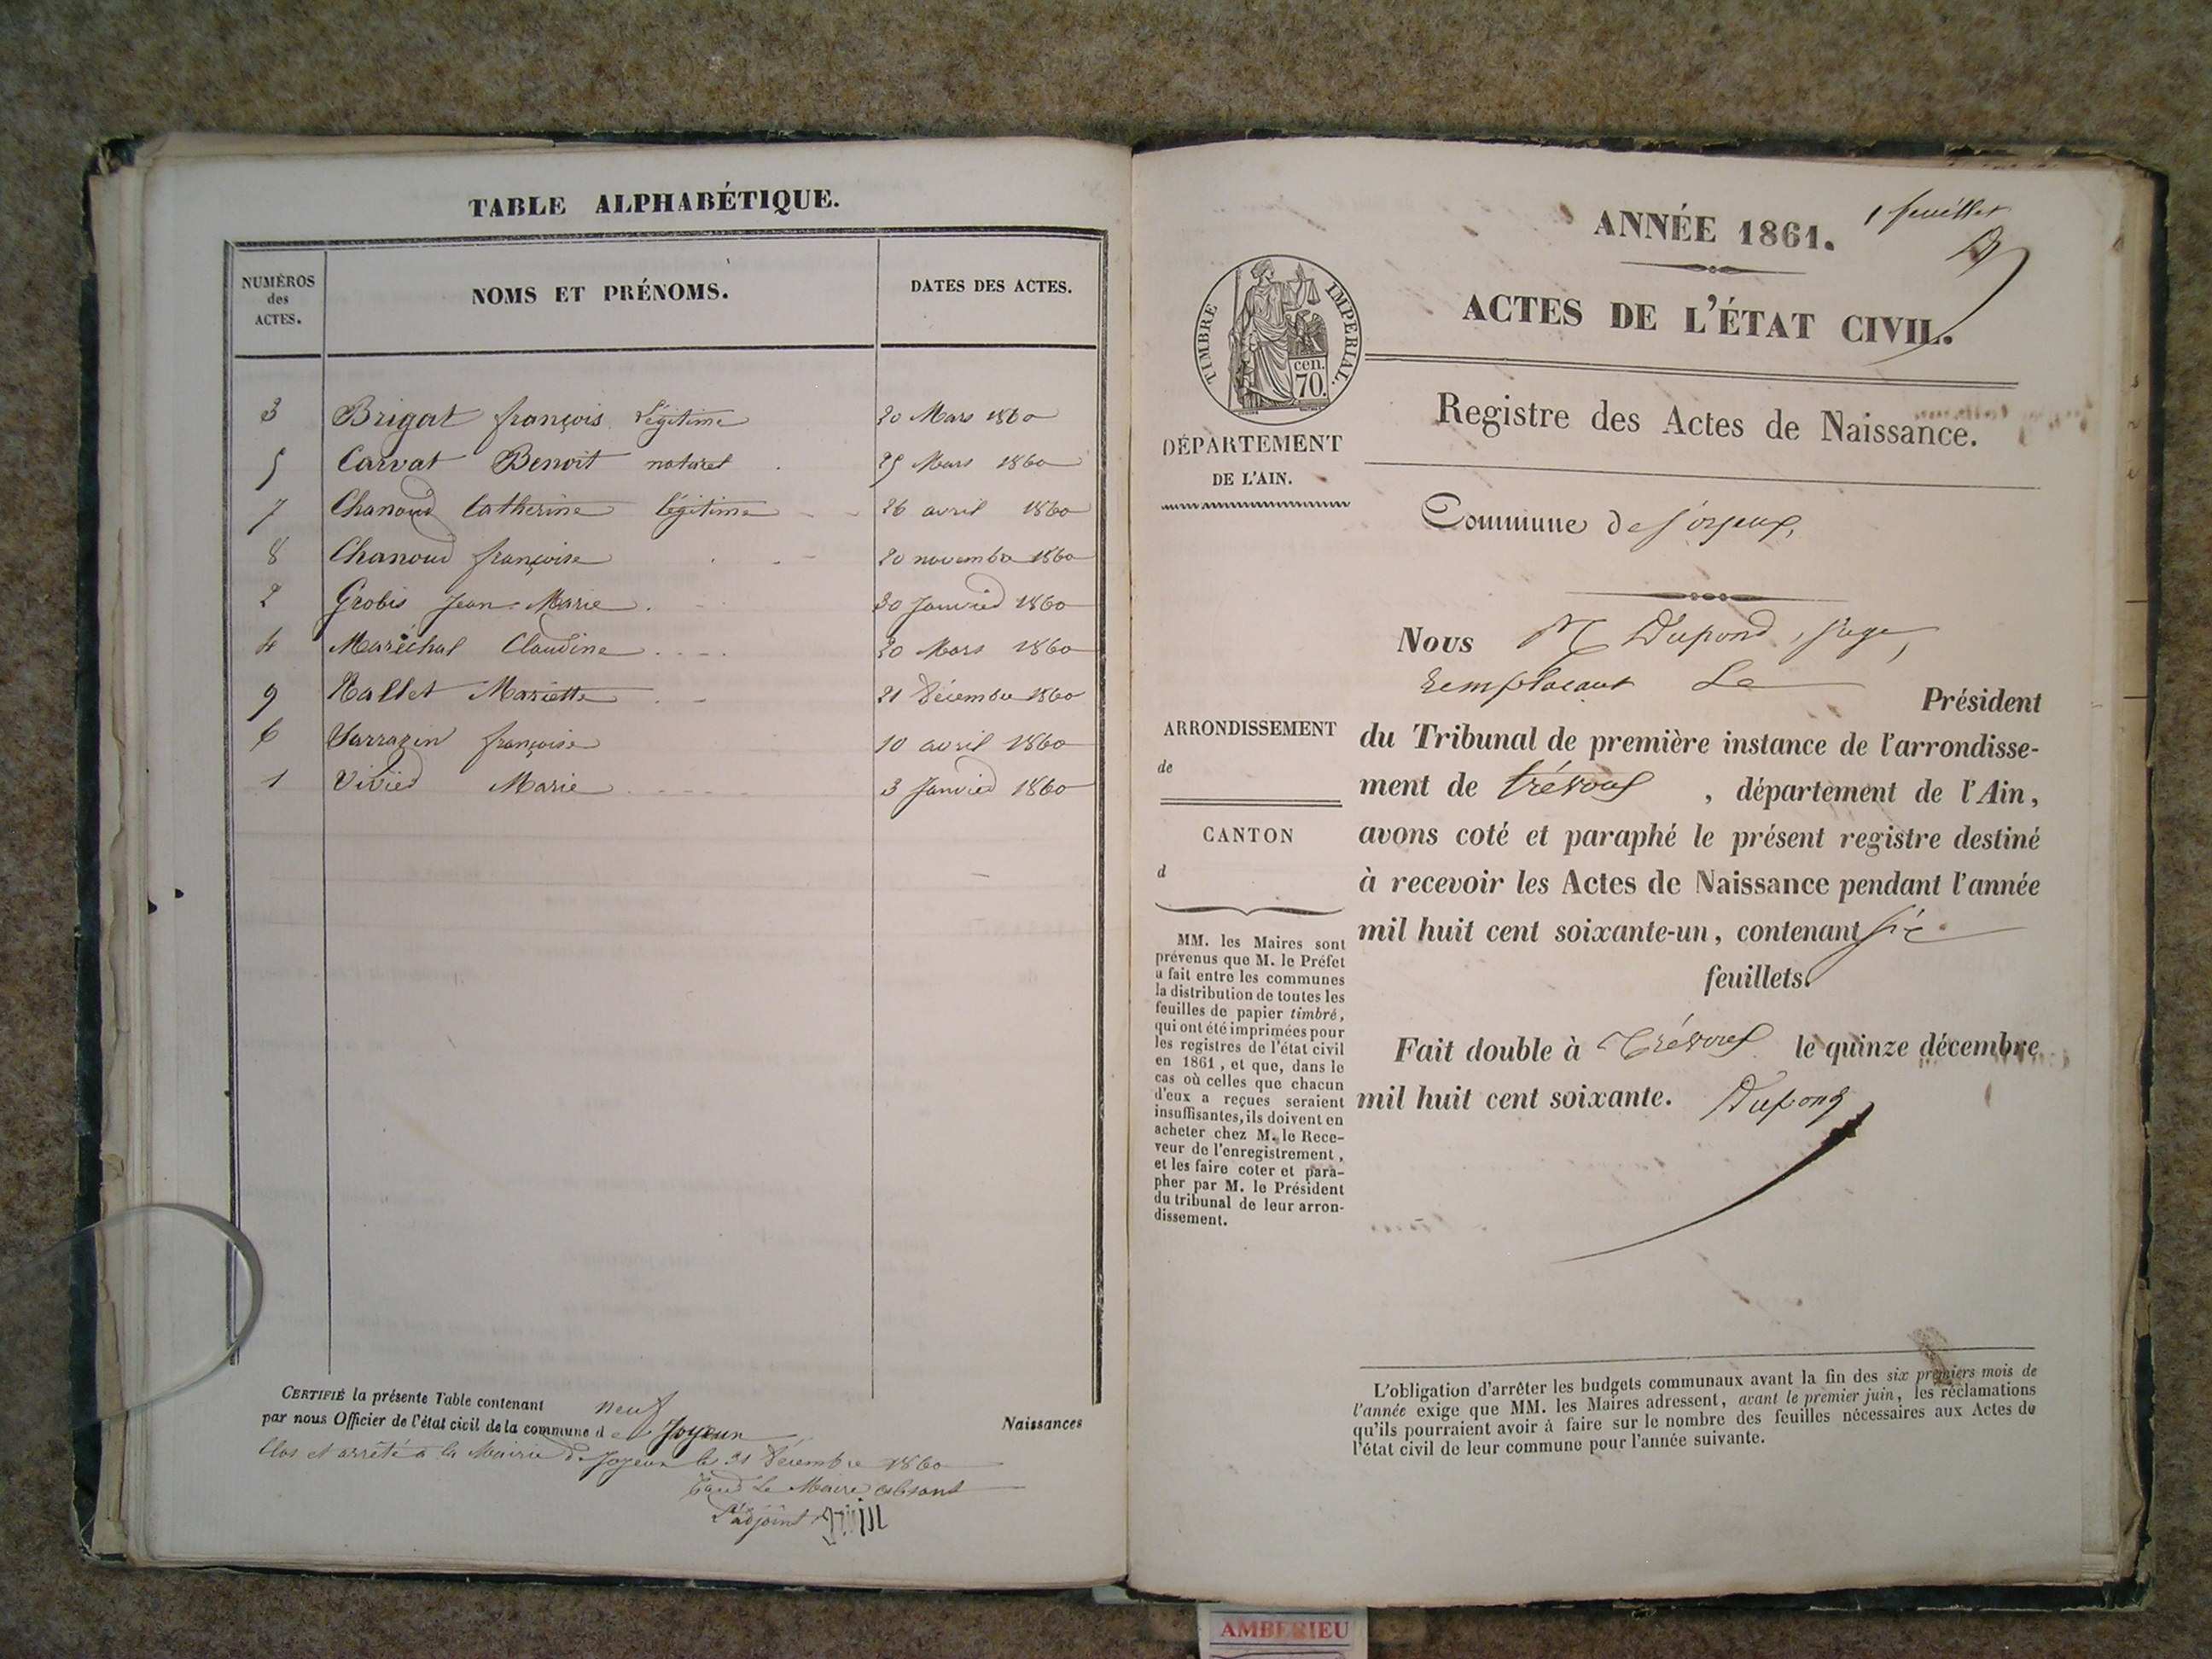 TABLE ALPHABÉTIQUE.
NUMÉROS
des
ACTES.
NOMS ET PRÉNOMS.
DATES DES ACTES.
3 Brigat françois légitime 20 Mars 1860
5 Carvat Benoit naturel 25 Mars 1860
7 Chanoud Catherine légitime 26 avril 1860
8 Chanoud françoise 20 novembre 1860
2 Grobis Jean-Marie 30 Janvier 1860
4 Maréchal Claudine 20 Mars 1860
9 Rallet Mariette 21 Décembre 1860
6 Sarrazin françoise 10 avril 1860
1 Vivier Marie 3 Janvier 1860
CERTIFIÉ la présente Table contenant neuf Naissances
par nous Officier de l'état civil de la commune de Joyeux
Clos et arrêté à la Mairie de Joyeux le 31 Décembre 1860
Le Maire absent
L'adjoint
1 feuillet
ANNÉE 1861.
ACTES DE L'ÉTAT CIVIL.
TIMBRE IMPERIAL.
cen.
70.
DÉPARTEMENT
DE L'AIN.
Registre des Actes de Naissance.
Commune de Joyeux,
ARRONDISSEMENT
de
CANTON
d
MM. les Maires sont
prévenus que M. le Préfet
a fait entre les communes
la distribution de toutes les
feuilles de papier timbré,
qui ont été imprimées pour
les registres de l'état civil
en 1861, et que, dans le
cas où celles que chacun
d'eux a reçues seraient
insuffisantes, ils doivent en
acheter chez M. le Rece-
veur de l'enregistrement,
et les faire coter et para-
pher par M. le Président
du tribunal de leur arron-
dissement.
Nous M Dupond, Juge,
remplacant Le Président
du Tribunal de première instance de l'arrondisse-
ment de trévoux, département de l'Ain,
avons coté et paraphé le présent registre destiné
à recevoir les Actes de Naissance pendant l'année
mil huit cent soixante-un, contenant six
feuillets.
Fait double à Trévoux le quinze décembre
mil huit cent soixante. Dupond
L'obligation d'arrêter les budgets communaux avant la fin des six premiers mois de
l'année exige que MM. les Maires adressent, avant le premier juin, les réclamations
qu'ils pourraient avoir à faire sur le nombre des feuilles nécessaires aux Actes de
l'état civil de leur commune pour l'année suivante.
AMBERIEU